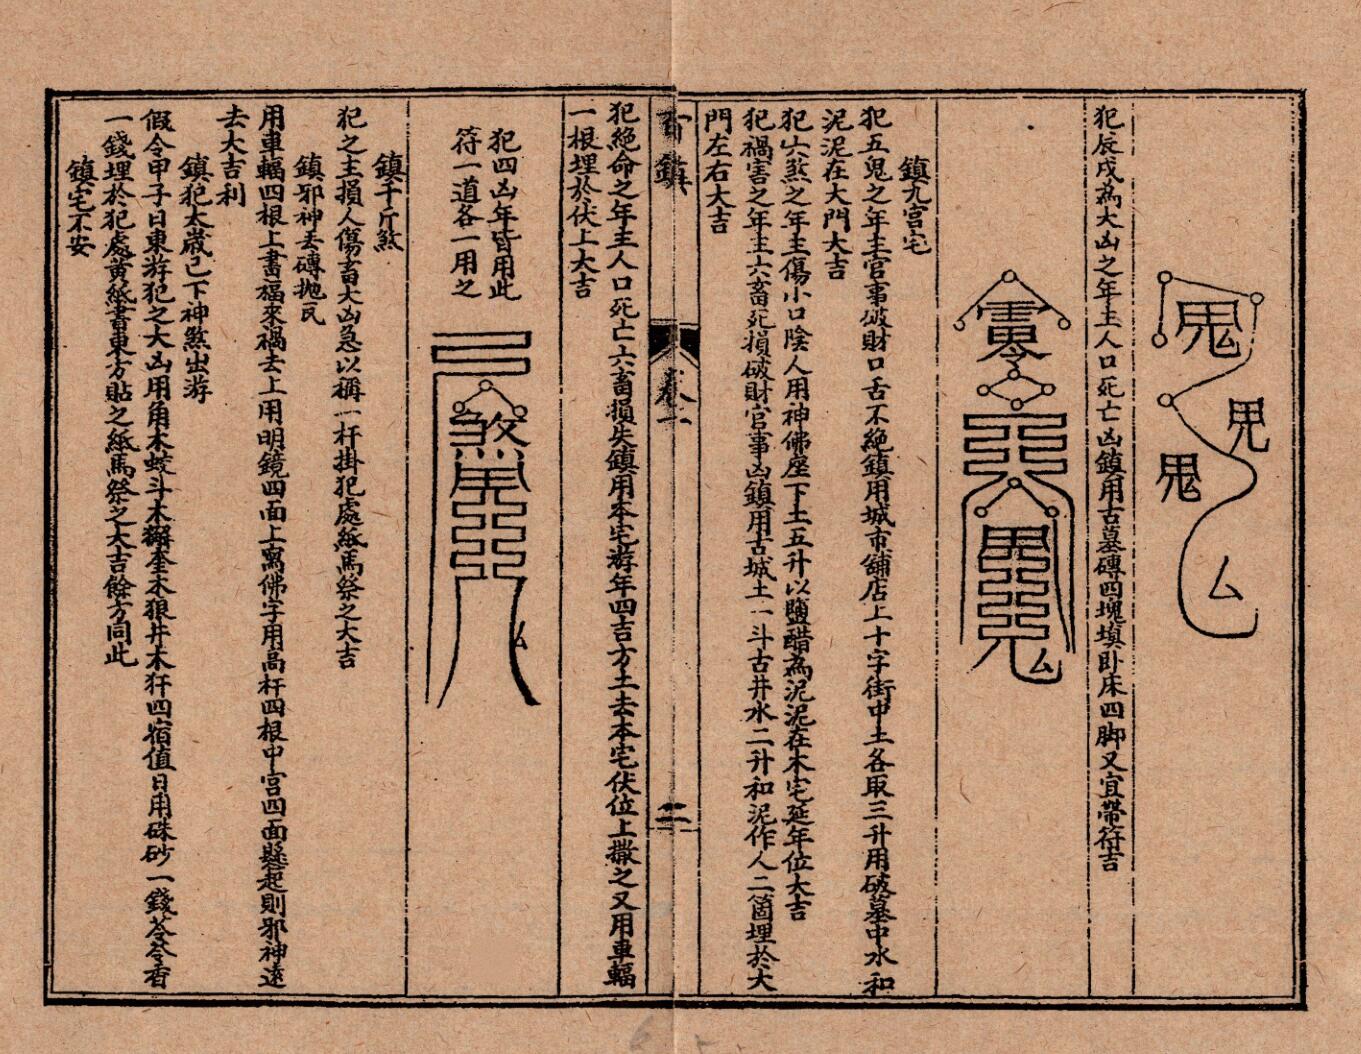 犯辰戌為大凶之年主人口死亡凶鎮用古墓磚四塊填卧床四脚又宜帶符吉
鎮九宮宅
犯五鬼之年主官事破財口舌不絶鎮用城市鋪店上十字街中土各取三升用破墓中水和
泥泥在大門大吉
犯六煞之年主傷小口陰人用神佛座下土五升以鹽醋為泥泥在本宅延年位大吉
犯禍害之年主六畜死損破財官事凶鎮用古城土一斗古井水二升和泥作人二箇埋於大
門左右大吉
鎮
卷二
二
犯絶命之年主人口死亡六畜損失鎮用本宅游年四吉方土去本宅伏位上撒之又用車輻
一根埋於伏上大吉
犯四凶年皆用此
符一道各一用之
鎮千斤煞
犯之主損人傷畜大凶急以稱一杆掛犯處紙馬祭之大吉
鎮邪神丢磚拋瓦
用車輻四根上書福來禍去上用明鏡四面上寫佛字用高杆四根中宮四面懸起則邪神遠
去大吉利
鎮犯太歲已下神煞出游
假令甲子日東游犯之大凶用角木蛟斗木獬奎木狼井木犴四宿值日用硃砂一錢苓苓香
一錢埋於犯處黄紙書東方貼之紙馬祭之大吉餘方同此
鎮宅不安